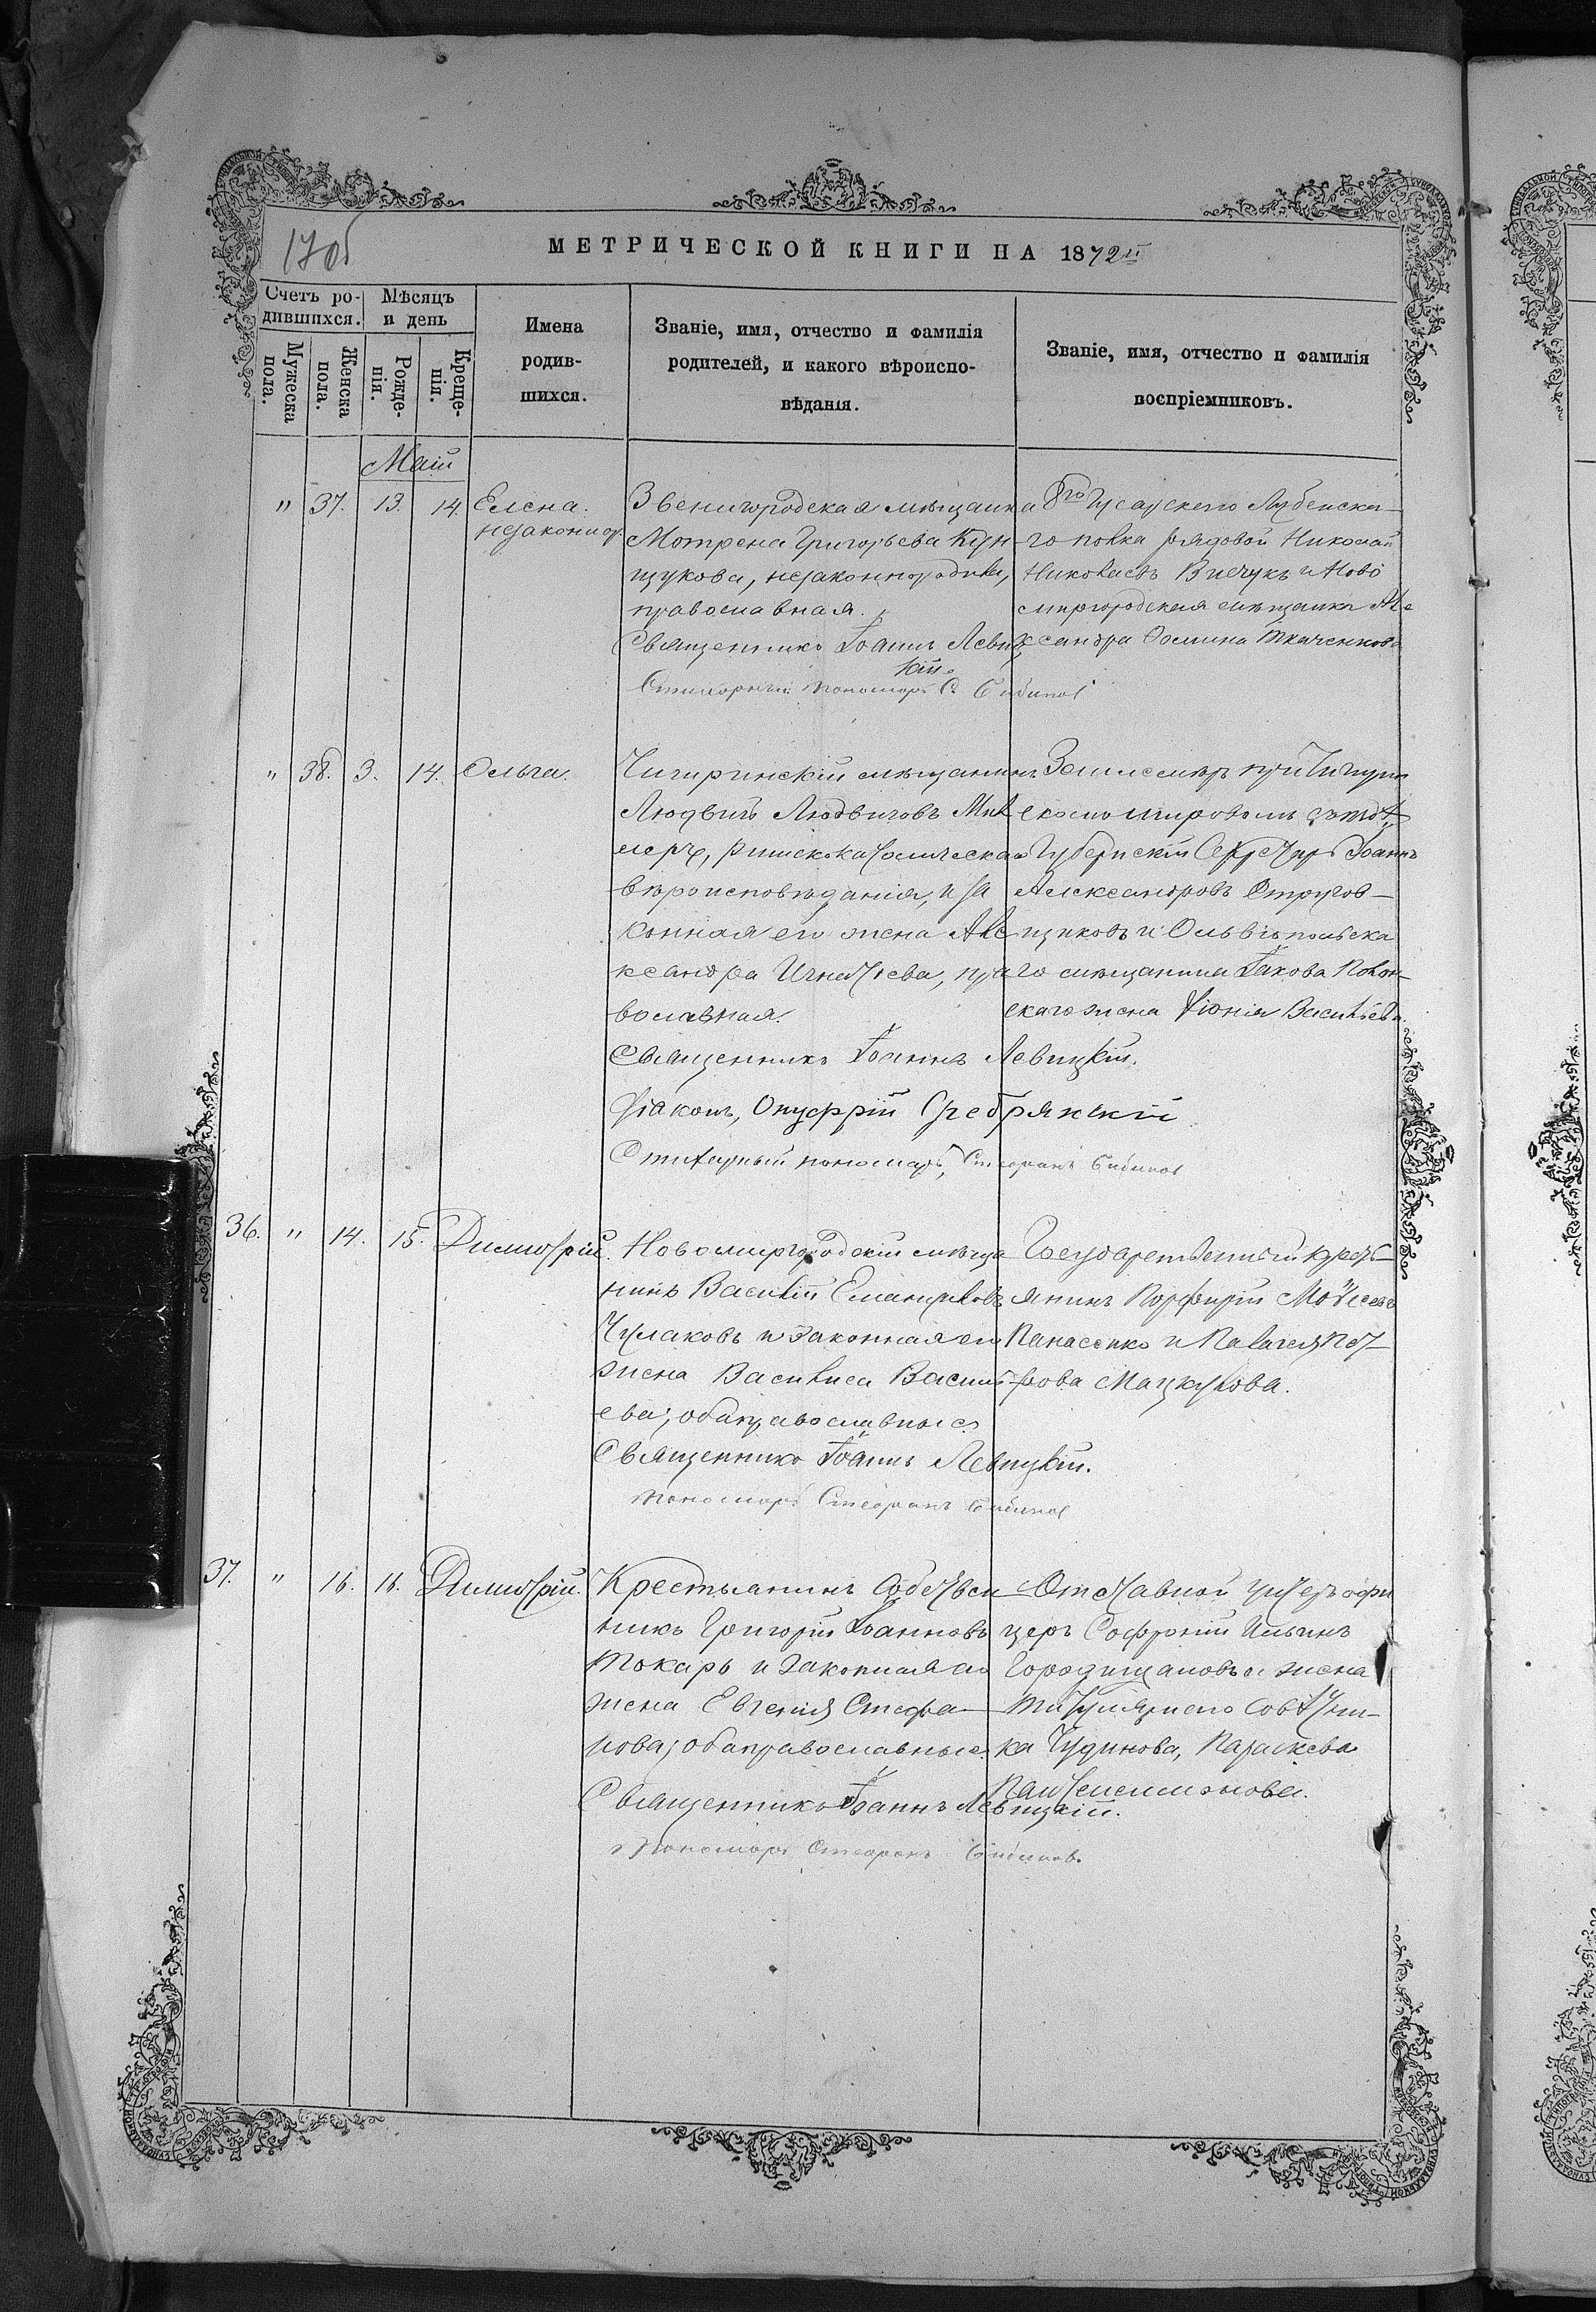 170б
МЕТРИЧЕСКОЙ КНИГИ НА 1872й
Счетъ ро-
дившихся.
Мѣсяцъ
и день
Мужеска
пола.
Женска
пола.
Рожде-
нія.
Креще-
нія.
Имена
родив-
шихся.
Званіе, имя, отчество и фамилія
родителей, и какого вѣроиспо-
вѣданія.
Званіе, имя, отчество и фамилія
воспріемниковъ.
Маій
" 37. 13. 14. Елена.
незаконнор
Звенигородская мѣщанка
Мотрена Григорьева
щукова, незаконнородила,
православная.
Священникъ Іоаннъ Левиц
кій.
Стихарный пономарь С
8го Гусарскаго Лубенска-
го полка рядовой Николай
Николаевъ и Ново
миргородская мѣщанка Але
ксандра Ткаченкова
" 38. 3. 14. Ольга.
Чигиринскій мѣщанинъ
Людвигъ Людвиговъ Мил
леръ, римскокатолическаго
вѣроисповѣданія, и за
конная его жена Але
ксандра Игнатіева, пра
вославная.
Священникъ Іоаннъ Левицкій.
Діаконъ, Онуфрій Сребрянскій
Стихарный пономарь, Стефанъ
Землемѣръ при Чигирин
скомъ мировомъ
Губернскій Секретарь Іоаннъ
Александровъ Стругов-
щиковъ и Ольвіопольска
го мѣщанина Іакова
скаго жена Васильева.
36. " 14. 15. Димитрій.
Новомиргородскій мѣща
нинъ Василій
Чулаковъ и законная его
жена Василиса Василь
ева, оба православные.
Священникъ Іоаннъ Левицкій.
Пономарь Стефанъ
Государственный кресть-
янинъ Порфирій Моѵсеевъ
Панасенко и Пелагея Пет-
рова Мацкулова.
37. " 16. 16. Димитрій.
Крестьянинъ Собствен
никъ Григорій Іоанновъ
Токарь и законная его
жена Евгенія Стефа-
нова, оба православные.
Священникъ Іоаннъ Левицкій.
Пономарь Стефанъ
Отставной унтеръ офи
церъ Софроній Ильинъ
Городищановъ и жена
Титулярнаго Совѣтни-
ка Чудинова, Параскева
Пантелеимонова.